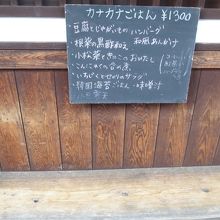 カナカナごはん ¥1300
・豆腐とじゃがいものハンバーグ
和風あんかけ
・根菜の黒酢和え
・小松菜ときのこのおひたし
・こんにゃくの
・いちじくとせりのサラダ
・韓国海苔ごはん・味噌汁